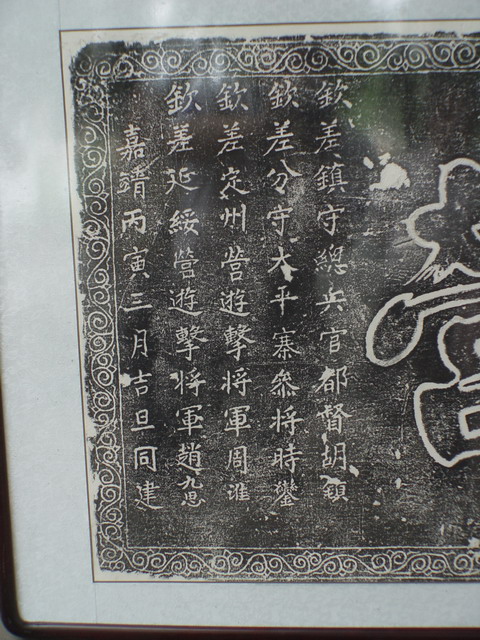 欽差鎮守總兵官都督胡鎮
欽差分守太平寨參將時鑾
欽差定州營遊擊將軍周淮
欽差延綏營遊擊將軍趙九思
嘉靖丙寅三月吉旦同建